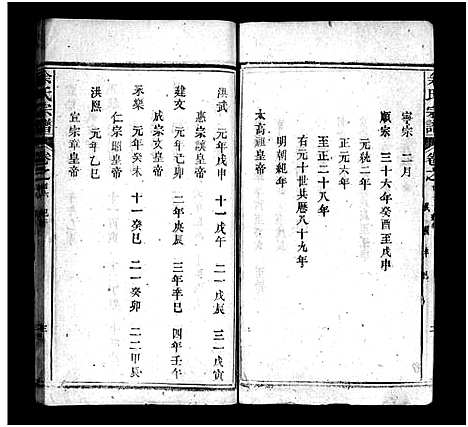 寧宗　二月
順宗　三十六年癸酉至戊申
元統二年
正元六年
至正二十八年
右元十世其曆八十九年
明朝紀年
太高祖皇帝
洪武　元年戊申　十一戊午　二一戊辰　三一戊寅
惠宗讓皇帝
建文　元年己卯　二年庚辰　三年辛巳　四年壬午
成宗文皇帝
永樂　元年癸未　十一癸巳　二一癸卯　二二甲辰
仁宗昭皇帝
洪熙　元年乙巳
宣宗章皇帝
余氏宗譜
卷之